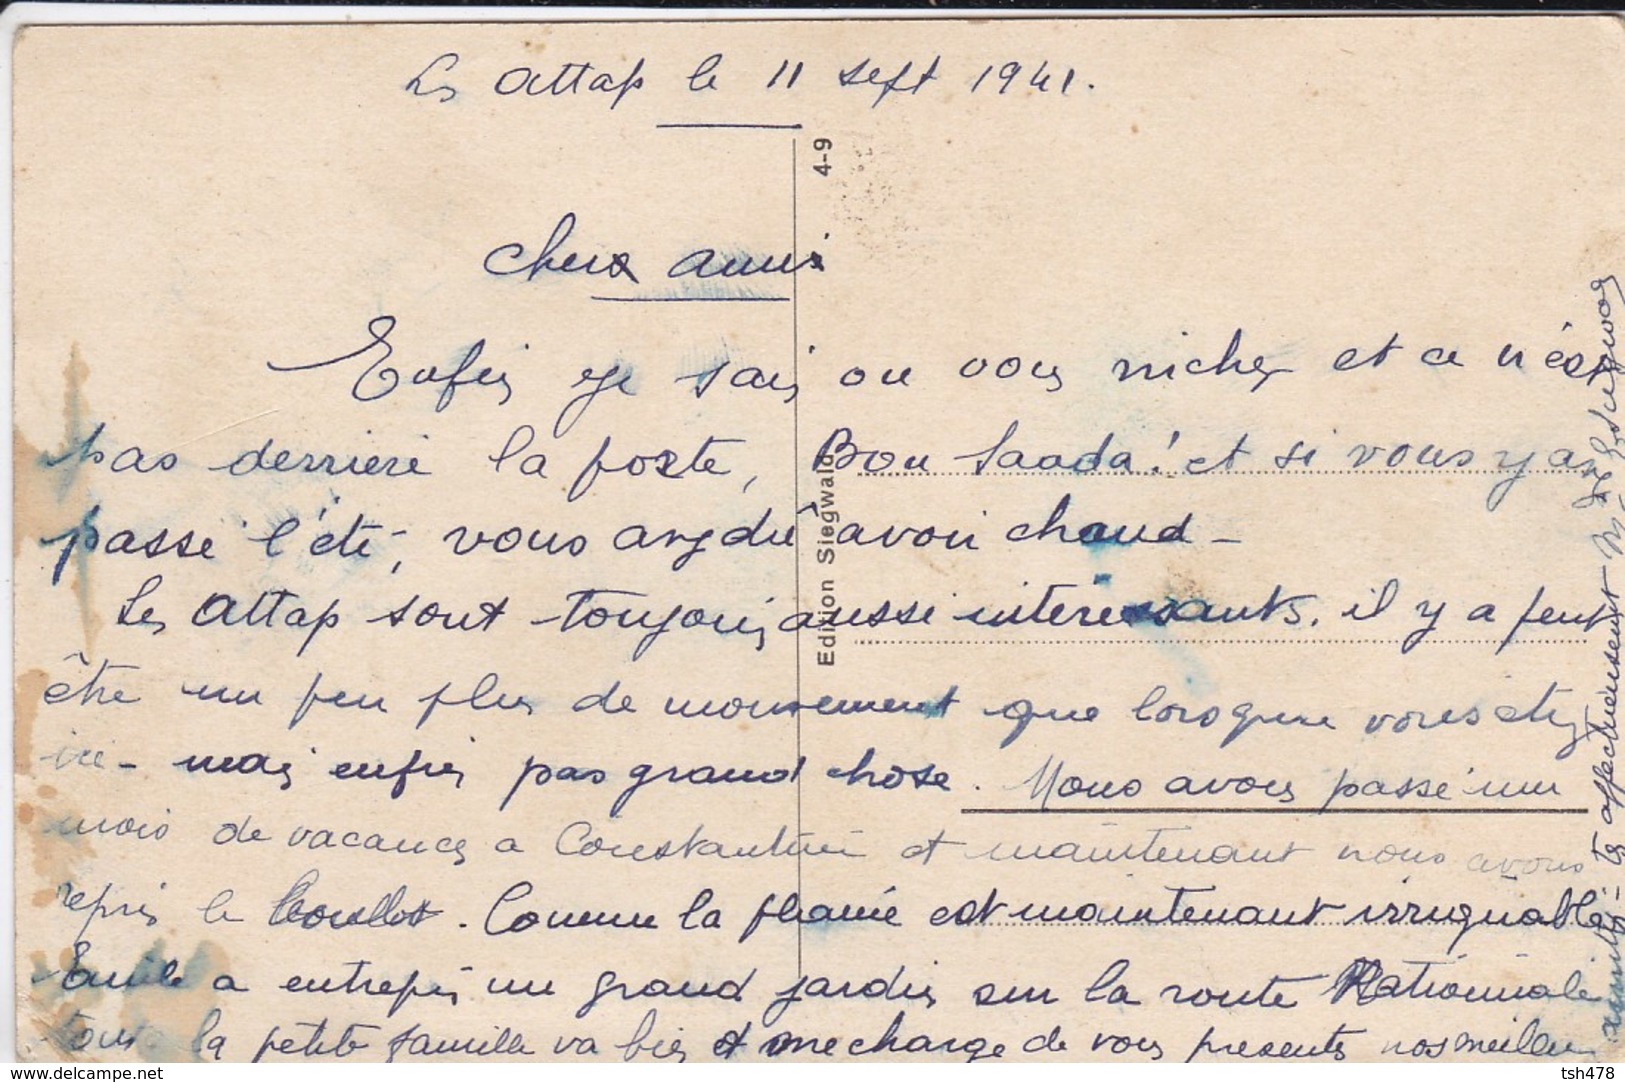 Les Attaf le 11 sept 1941.
4-9
Chers amis
Enfin je sais ou vous nicher et ce n'est
pas derriere la poste, Bou Saada! et si vous y avez
passé l'été, vous avez dû avoir chaud -
Edition Siegwald
Les Attaf sont toujours aussi intéressants. il y a peut
être un peu plus de mouvement que lorsque vous étiez
ici - mais enfin pas grand chose. Nous avons passé un
mois de vacances a Constantine et maintenant nous avons
repris le boulot. Comme la plaine est maintenant irriguable
Emile a entrepris un grand jardin sur la route Nationale
toute la petite famille va bien et me charge de vous presenter nos meilleurs
amitiés - très affectueusement
tsh478